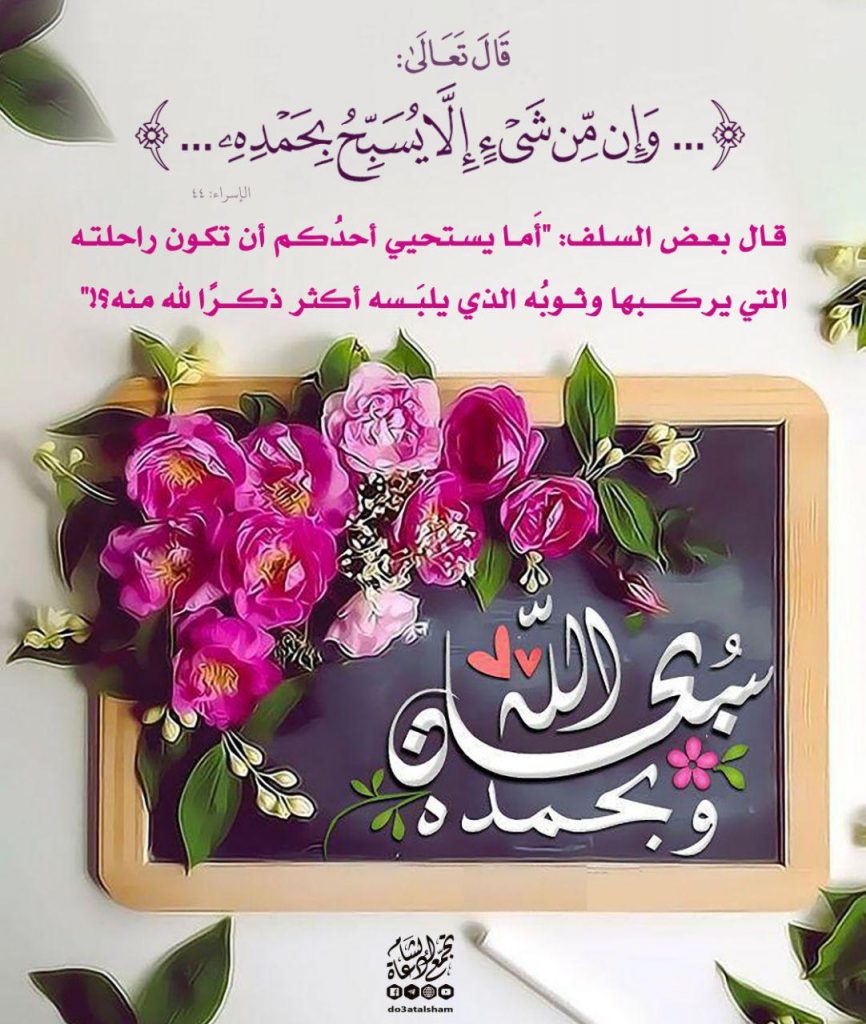 قَالَ تَعَالَىٰ:
﴿... وَإِن مِّن شَيْءٍ إِلَّا يُسَبِّحُ بِحَمْدِهِۦ ...﴾
الإسراء: ٤٤
قال بعض السلف: "أَما يستحيي أحدُكم أن تكون راحلته
التي يركبها وثوبُه الذي يلبَسه أكثر ذكرًا لله منه؟!"
سُبحان اللّٰه
وبحمده
تجمع دعاة الشام
do3atalsham